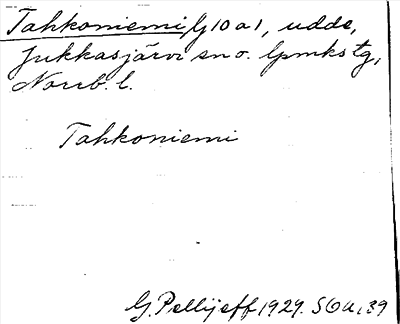 Tahkoniemi fj 10 a 1, udde,
Jukkasjärvi sn o. lpmks tg,
Norrb. l.
Tahkoniemi
G. Pellijeff 1929. SOU, 39